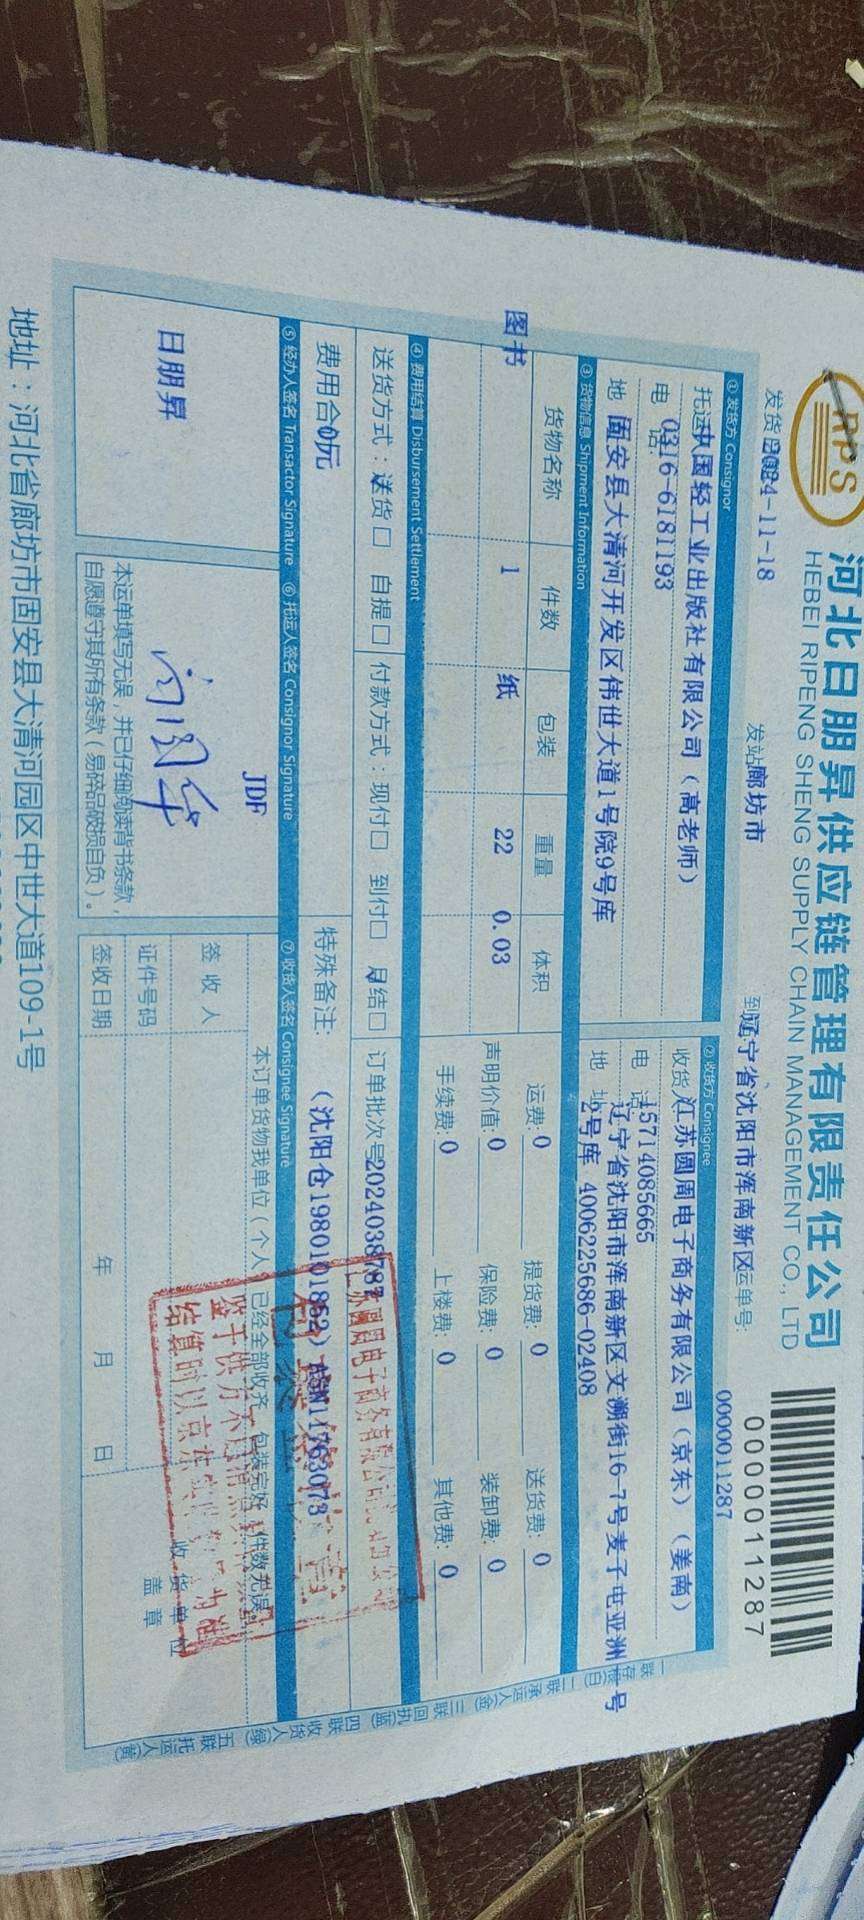 RPS
河北日朋昇供应链管理有限责任公司
HEBEI RIPENG SHENG SUPPLY CHAIN MANAGEMENT CO., LTD
0000011287
发货日期2024-11-18
发站廊坊市
到辽宁省沈阳市浑南新区
运单号:
0000011287
① 发货方 Consignor
托运中国轻工业出版社有限公司（高老师）
电话:0316-6181193
地 固安县大清河开发区伟世大道1号院9号库
② 收货方 Consignee
收货江苏圆周电子商务有限公司（京东）（姜南）
电话15714085665
地址辽宁省沈阳市浑南新区文溯街16-7号麦子屯亚洲一号
2号库 4006225686-02408
③ 货物信息 Shipment Information
货物名称 件数 包装 重量 体积
图书 1 纸 22 0.03
运费: 0 提货费: 0 送货费: 0
声明价值: 0 保险费: 0 装卸费: 0
手续费: 0 上楼费: 0 其他费: 0
④ 费用结算 Disbursement Settlement
送货方式：送货□ 自提□ 付款方式：现付□ 到付□ 月结□ 订单批次号
费用合0元
特殊备注: （沈阳仓1980101862）ASN11763073
⑤ 经办人签名 Transactor Signature ⑥ 托运人签名 Consignor Signature ⑦ 收货人签名 Consignee Signature
日朋昇
JDF
本运单填写无误，并已仔细阅读背书条款，
自愿遵守其所有条款（易碎品破损自负）。
本订单货物我单位（个人）已经全部收齐，包装完好，件数无误。
签 收 人
证件号码
签收日期 年 月 日
收货单位
盖章
江苏圆周电子商务有限公司
一联存根(白) 二联承运人(金) 三联回执(蓝) 四联收货人(绿) 五联托运人(黄)
地址：河北省廊坊市固安县大清河园区中世大道109-1号